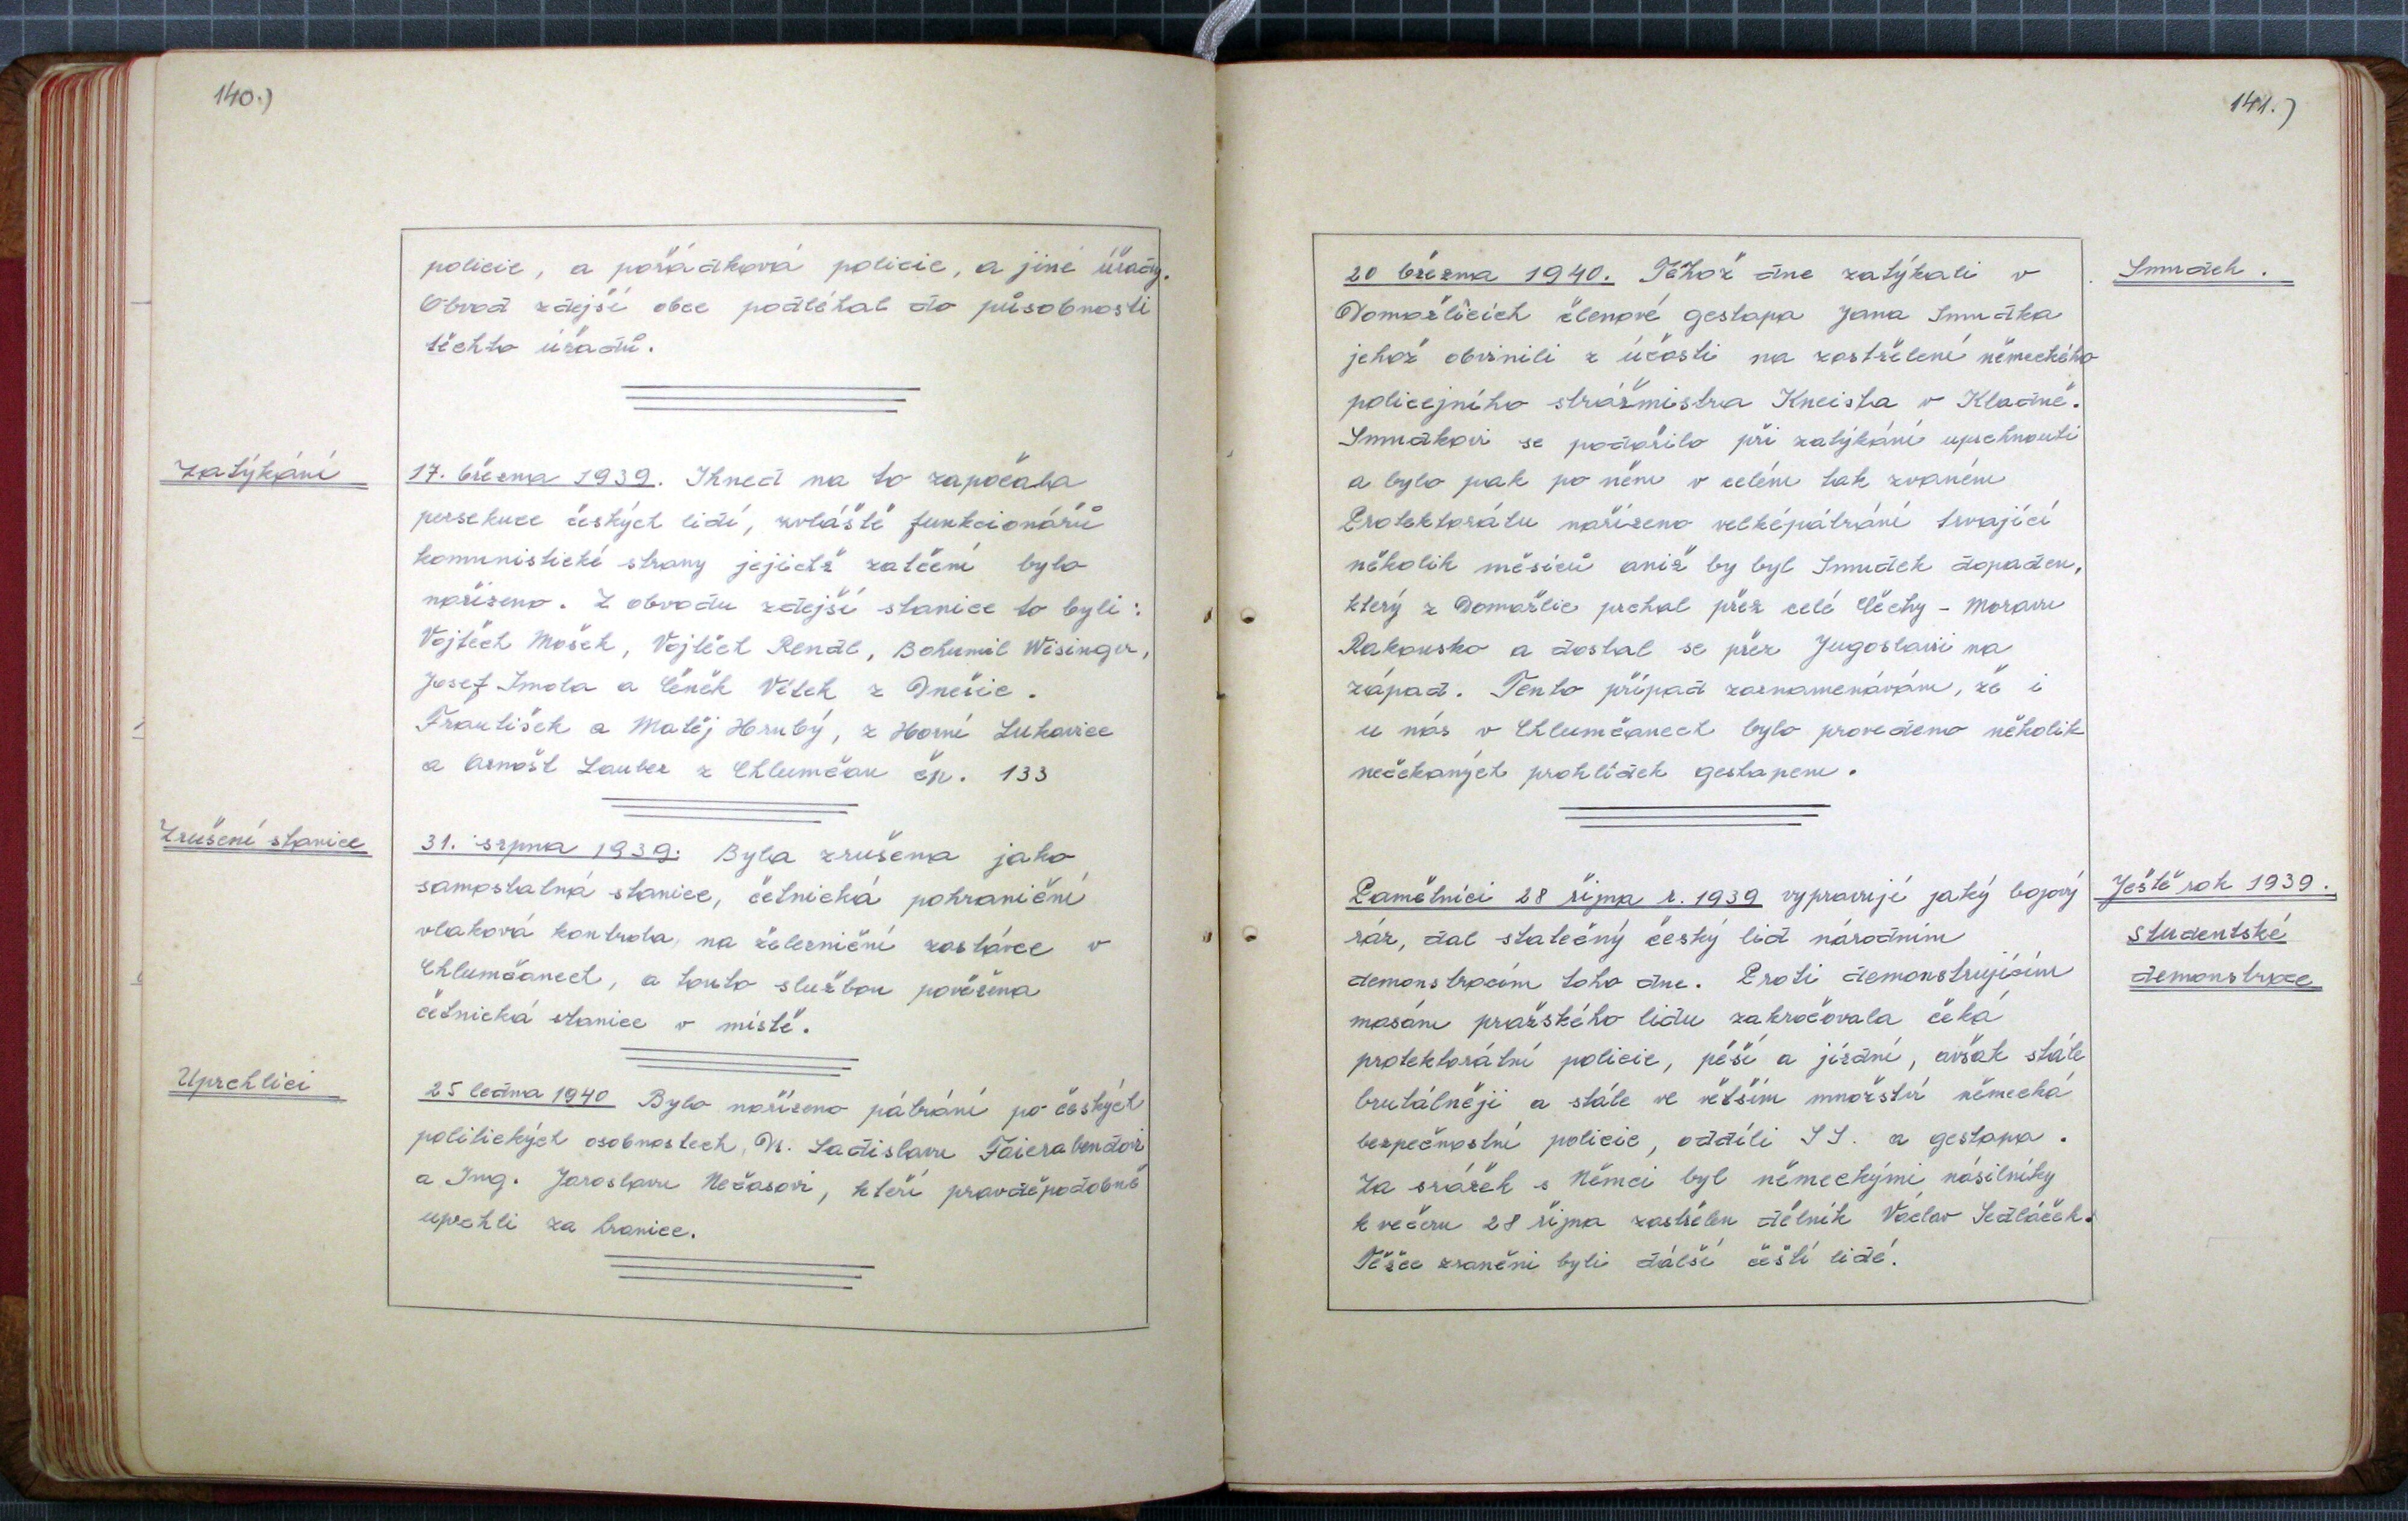 140.)
policie, a pořádková policie, a jiné úřady.
Obvod zdejší obce podléhal do působnosti
těchto úřadů.
Zatýkání
17. března 1939. Ihned na to započala
persekuce českých lidí, zvláště funkcionářů
komunistické strany jejichž zatčení bylo
nařízeno. Z obvodu zdejší stanice to byli:
Vojtěch Mašek, Vojtěch Rendl, Bohumil Wisinger,
Josef Smola a Čeněk Vítek z Dnešic.
František a Matěj Hrubý, z Horní Lukavice
a Arnošt Lauber z Chlumčan čp. 133
Zrušení stanice
31. srpna 1939. Byla zrušena jako
samostatná stanice, četnická pohraniční
vlaková kontrola, na železniční zastávce v
Chlumčanech, a touto službou pověřena
četnická stanice v místě.
Uprchlici
25 ledna 1940 Bylo nařízeno pátrání po českých
politických osobnostech, Dr. Ladislavu Faierabendovi
a Ing. Jaroslavu Nečasovi, kteří pravděpodobně
uprchli za hranice.
141.)
Smudek.
20 března 1940. Téhož dne zatýkali v
Domažlicích členové gestapa Jana Smudka
jehož obvinili z účasti na zastřelení německého
policejního strážmistra Kneista v Kladně.
Smudkovi se podařilo při zatýkání uprchnouti
a bylo pak po něm v celém tak zvaném
Protektorátu nařízeno velképátrání trvající
několik měsíců aniž by byl Smudek dopaden,
který z Domažlic prchal přez celé Čechy - Moravu
Rakousko a dostal se přez Jugoslavii na
západ. Tento případ zaznamenávám, že i
u nás v Chlumčanech bylo provedeno několik
nečekaných prohlídek gestapem.
Ještě rok 1939.
Studentské
demonstrace
Pamětníci 28 října r. 1939 vypravují jaký bojový
ráz, dal statečný český lid národním
demonstracím toho dne. Proti demonstrujícím
masám pražského lidu zakročovala čeká
protektorátní policie, pěší a jízdní, avšak stále
brutálněji a stále ve větším množství německá
bezpečnostní policie, oddíli SS. a gestapa.
Za srážek s Němci byl německými násilníky
k večeru 28 října zastřelen dělník Václav Sedláček.
Těžce zraněni byli dálší čeští lidé.